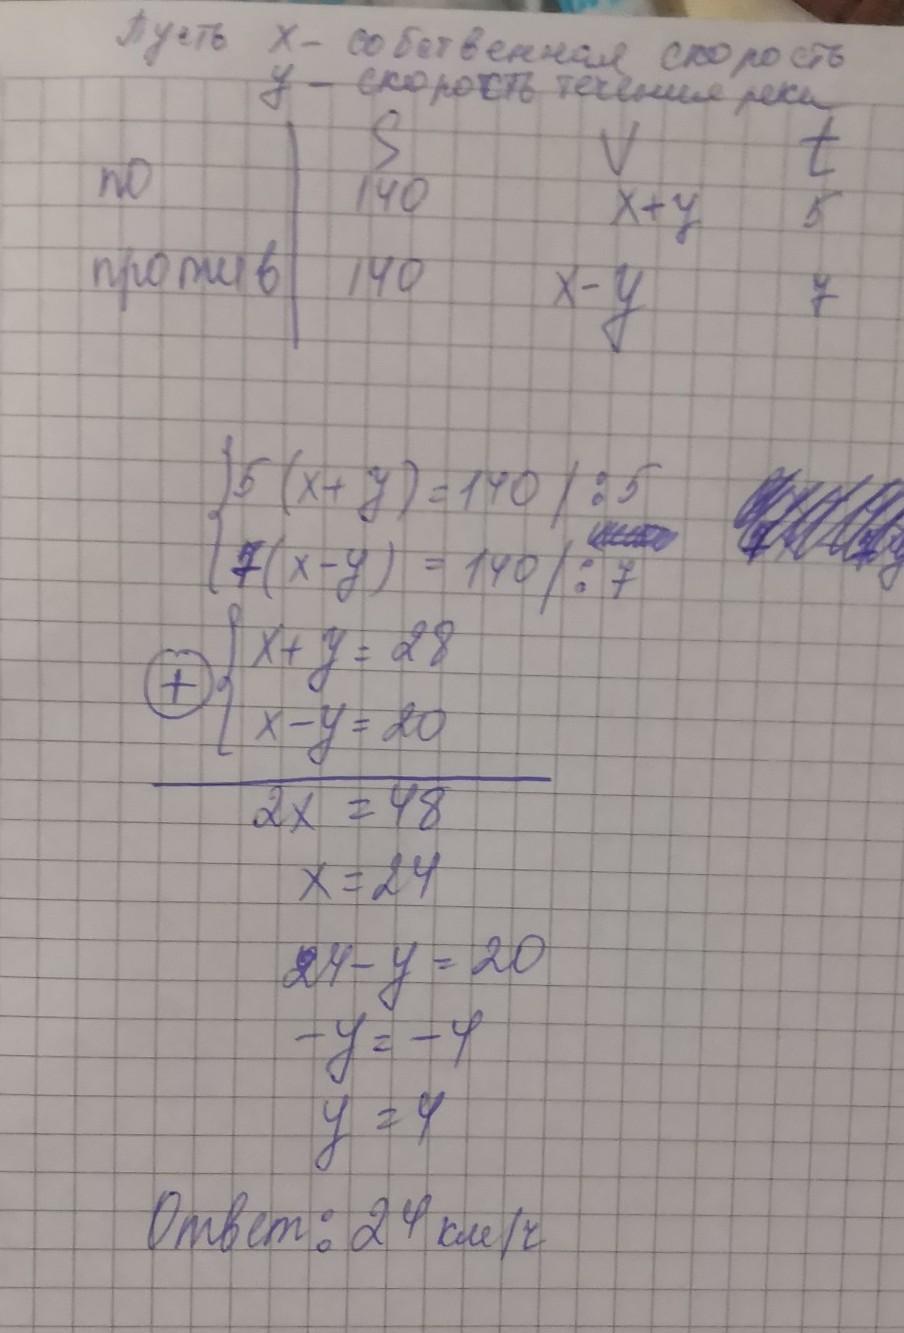 Пусть x - собственная скорость
y - скорость течения реки
S V t
по 140 x+y 5
против 140 x-y 7
5(x+y)=140 /:5
7(x-y) = 140 /:7
x+y=28
+
x-y=20
2x = 48
x=24
24-y=20
-y=-4
y=4
Ответ: 24 км/ч